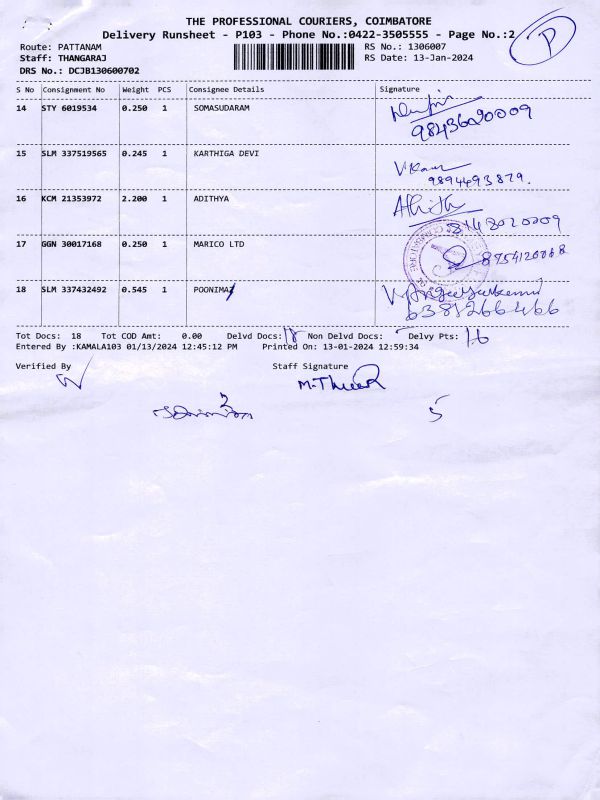 THE PROFESSIONAL COURIERS, COIMBATORE
Delivery Runsheet - P103 - Phone No.:0422-3505555 - Page No.:2
P
Route: PATTANAM
RS No.: 1306007
Staff: THANGARAJ
RS Date: 13-Jan-2024
DRS No.: DCJB130600702
S No Consignment No Weight PCS Consignee Details Signature
14 STY 6019534 0.250 1 SOMASUDARAM
9843020009
15 SLM 337519565 0.245 1 KARTHIGA DEVI
9894493879.
16 KCM 21353972 2.200 1 ADITHYA
8148020009
17 GGN 30017168 0.250 1 MARICO LTD
8754120068
18 SLM 337432492 0.545 1 POONIMA
6381266466
Tot Docs: 18 Tot COD Amt: 0.00 Delvd Docs: 18 Non Delvd Docs: Delvy Pts: 16
Entered By :KAMALA103 01/13/2024 12:45:12 PM Printed On: 13-01-2024 12:59:34
Verified By Staff Signature
5